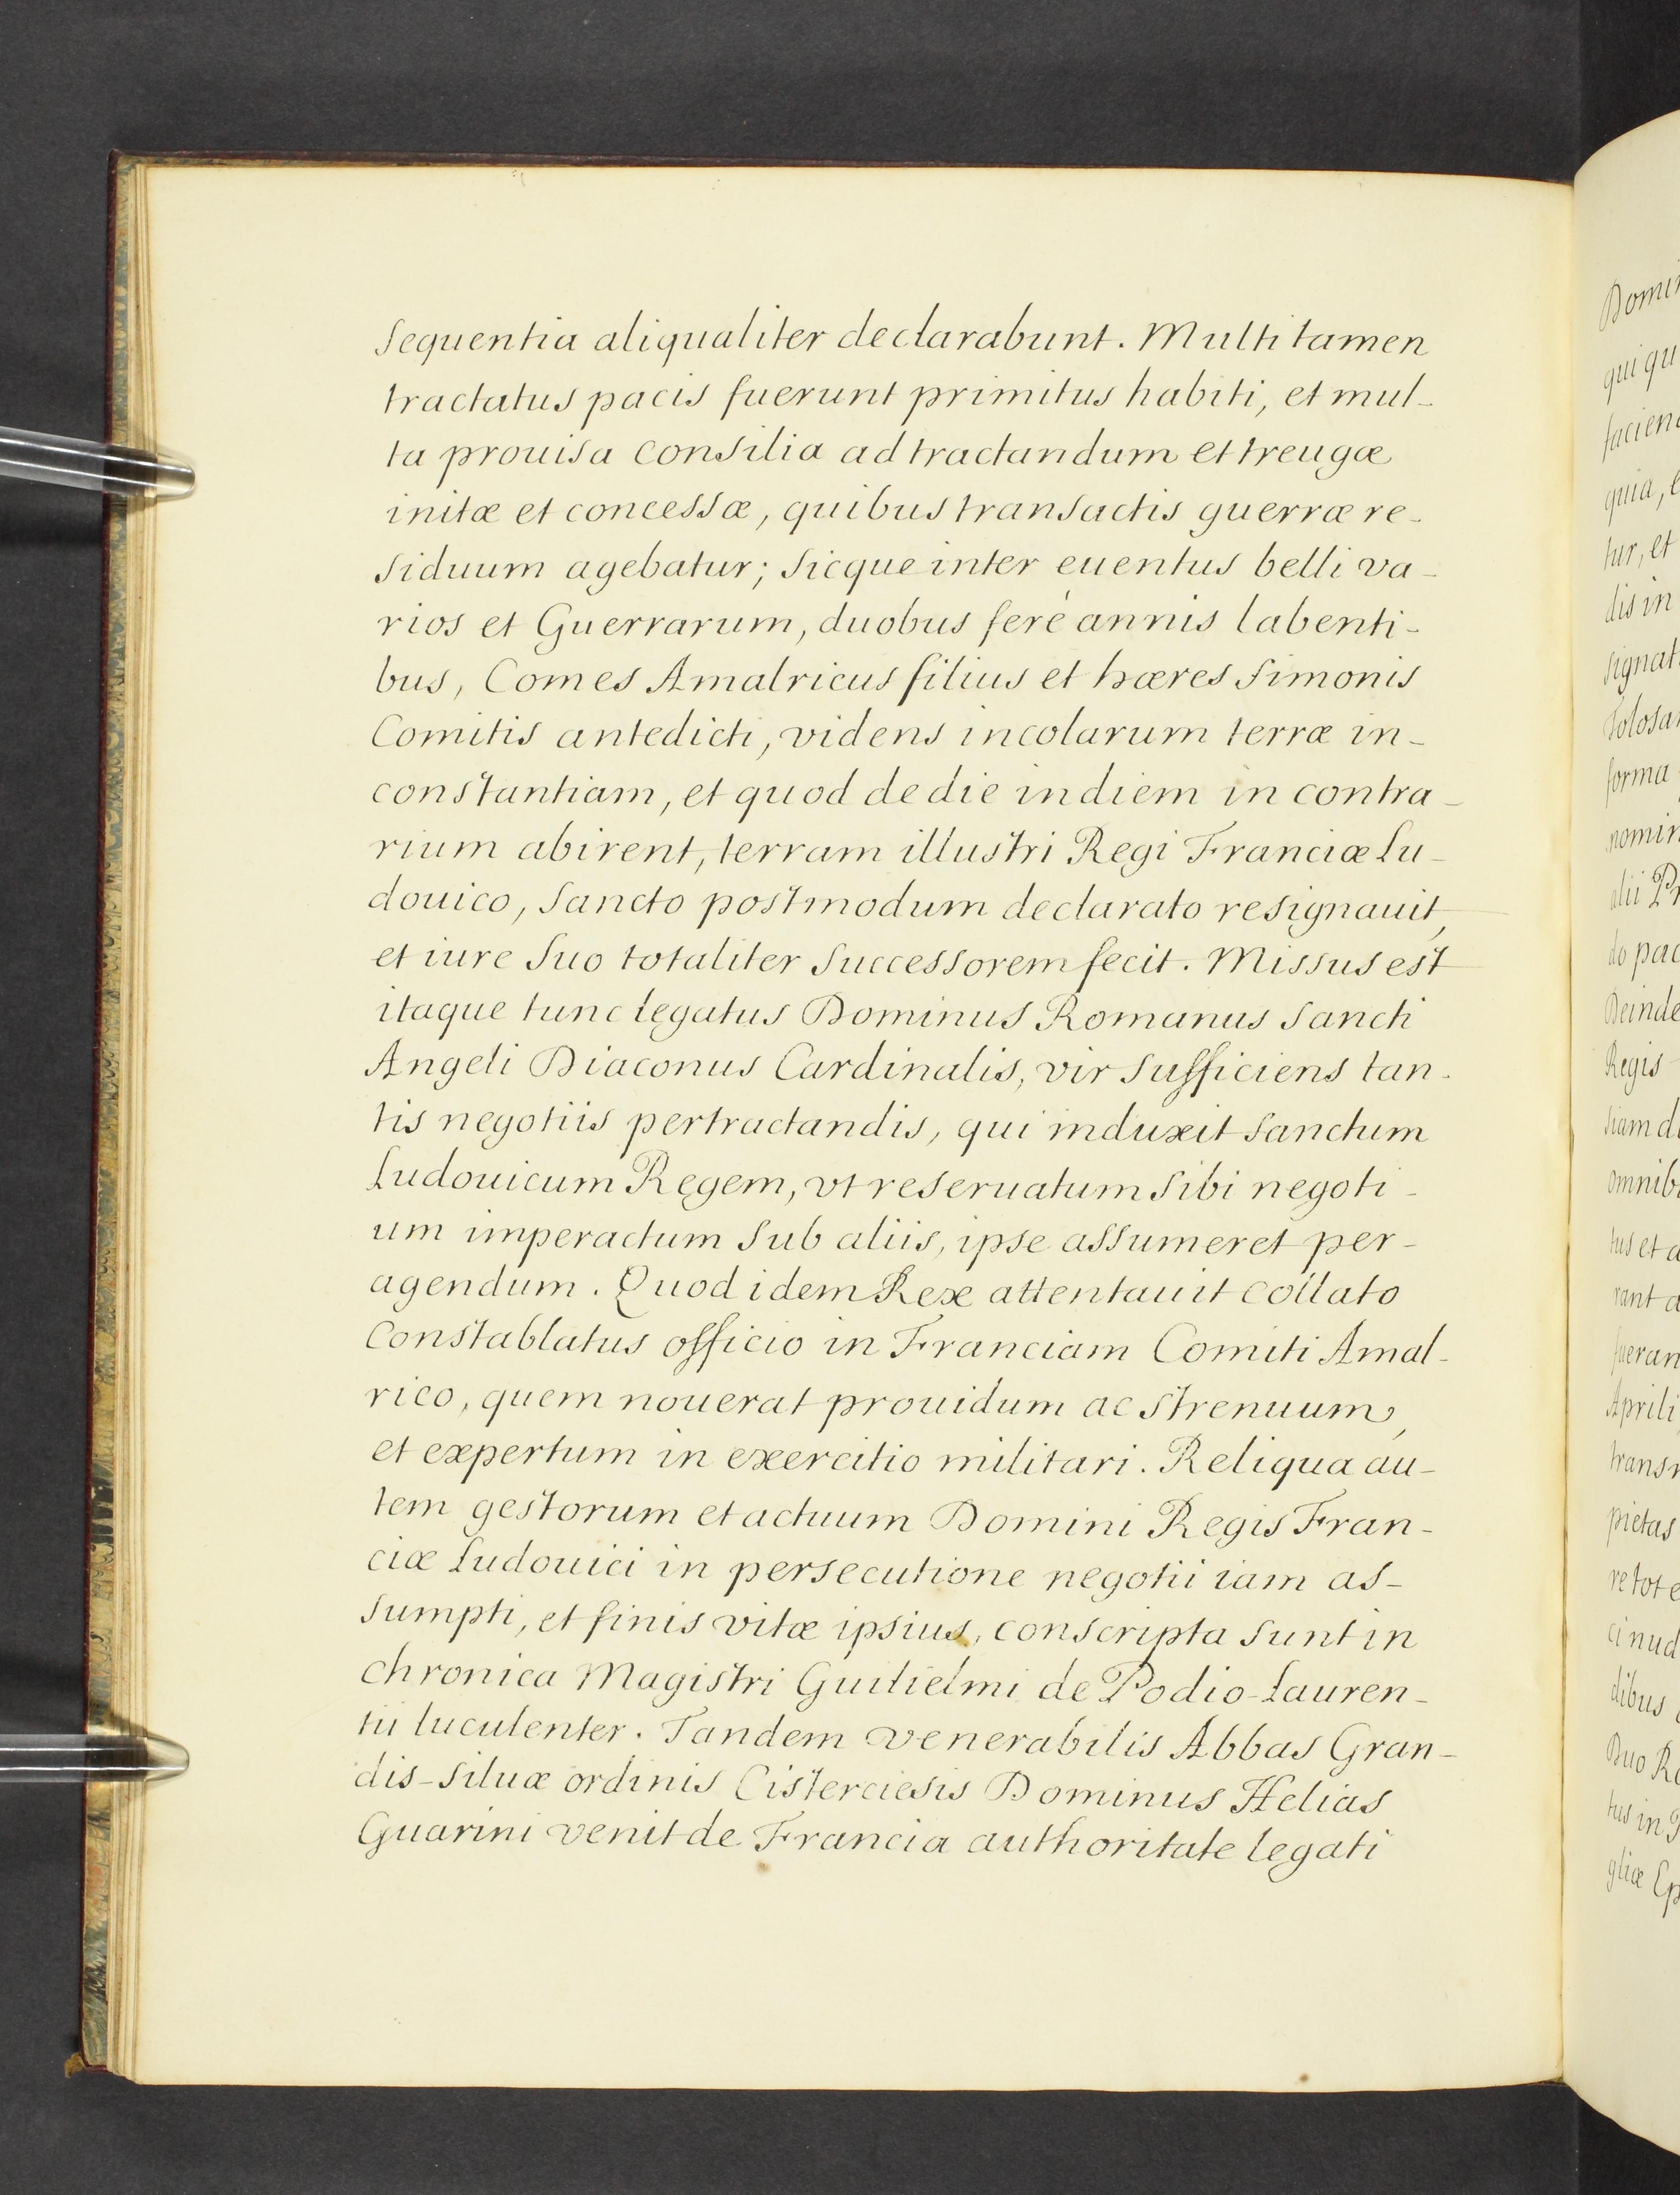 Sequentia aliqualiter declarabunt. Multi tamen
tractatus pacis fuerunt primitus habiti, et mul-
ta prouisa consilia ad tractandum et treugæ
initæ et concessæ, quibus transactis guerræ re-
siduum agebatur; sicque inter euentus belli va-
rios et Guerrarum, duobus ferè annis labenti-
bus, Comes Amalricus filius et hæres Simonis
Comitis antedicti, videns incolarum terræ in-
constantiam, et quod de die in diem in contra-
rium abirent, terram illustri Regi Franciæ Lu-
douico, Sancto postmodum declarato resignauit,
et iure suo totaliter successorem fecit. Missus est
itaque tunc legatus Dominus Romanus Sancti
Angeli Diaconus Cardinalis, vir sufficiens tan-
tis negotiis pertractandis, qui induxit Sanctum
Ludouicum Regem, vt reseruatum sibi negoti-
um imperactum sub aliis, ipse assumeret per-
agendum. Quod idem Rex attentauit collato
Constablatus officio in Franciam Comiti Amal-
rico, quem nouerat prouidum ac strenuum,
et expertum in exercitio militari. Reliqua au-
tem gestorum et actuum Domini Regis Fran-
ciæ Ludouici in persecutione negotii iam as-
sumpti, et finis vitæ ipsius, conscripta sunt in
chronica Magistri Guilielmi de Podio-Lauren-
tii luculenter. Tandem venerabilis Abbas Gran-
dis-siluæ ordinis Cisterciesis Dominus Helias
Guarini venit de Francia authoritate legati